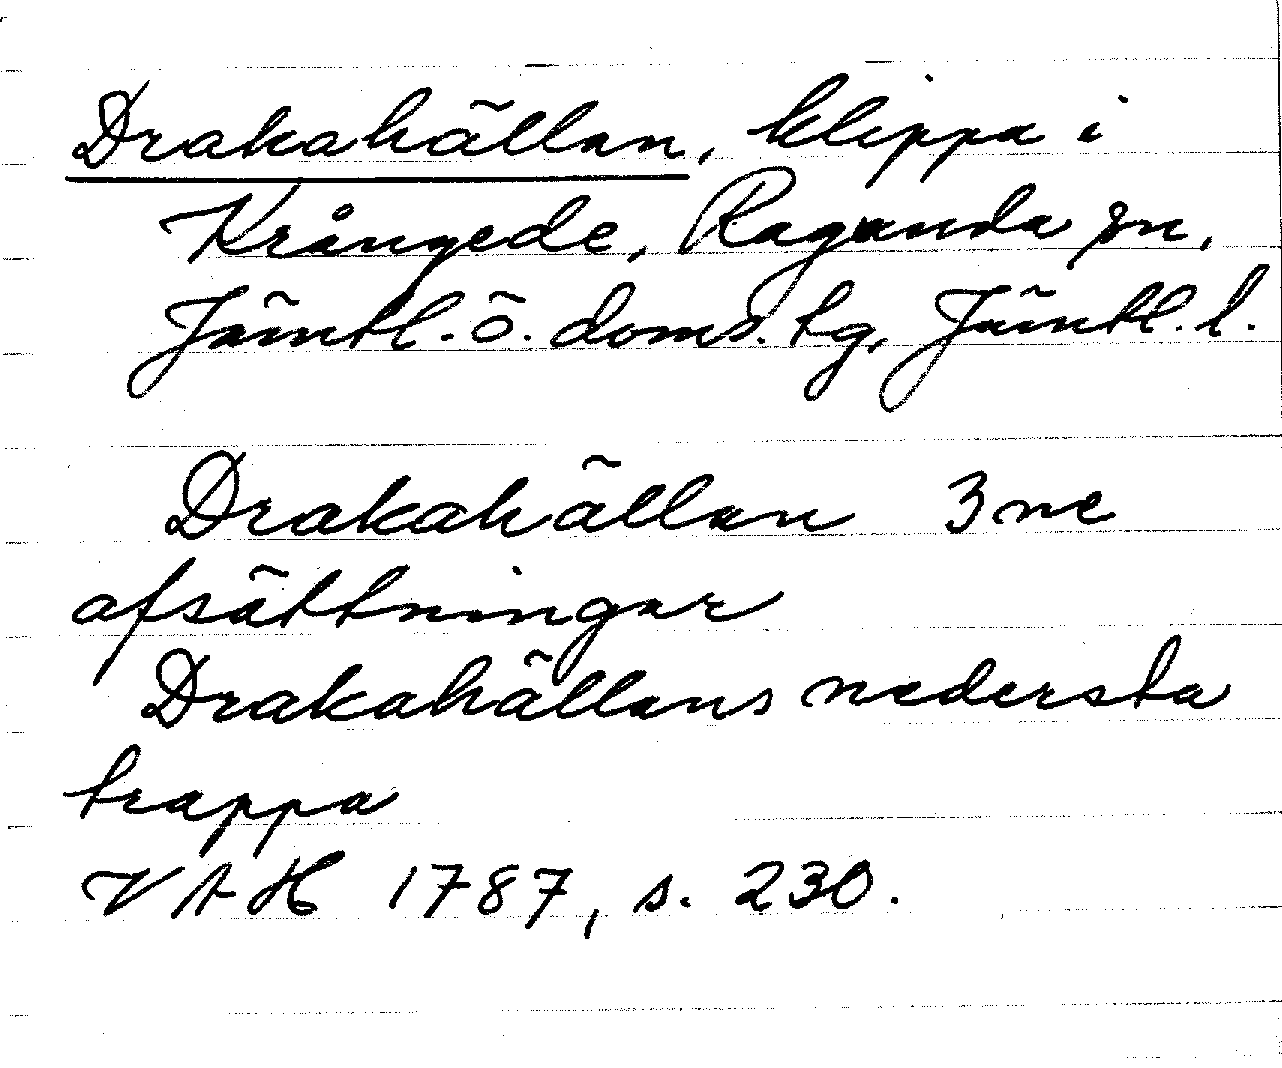 Drakahällan, klippa i
Krångede, Ragunda sn,
Jämtl. ö. doms. tg, Jämtl. l.
Drakahällan 3ne
afsättningar
Drakahällans nedersta
trappa
VAH 1787, s. 230.